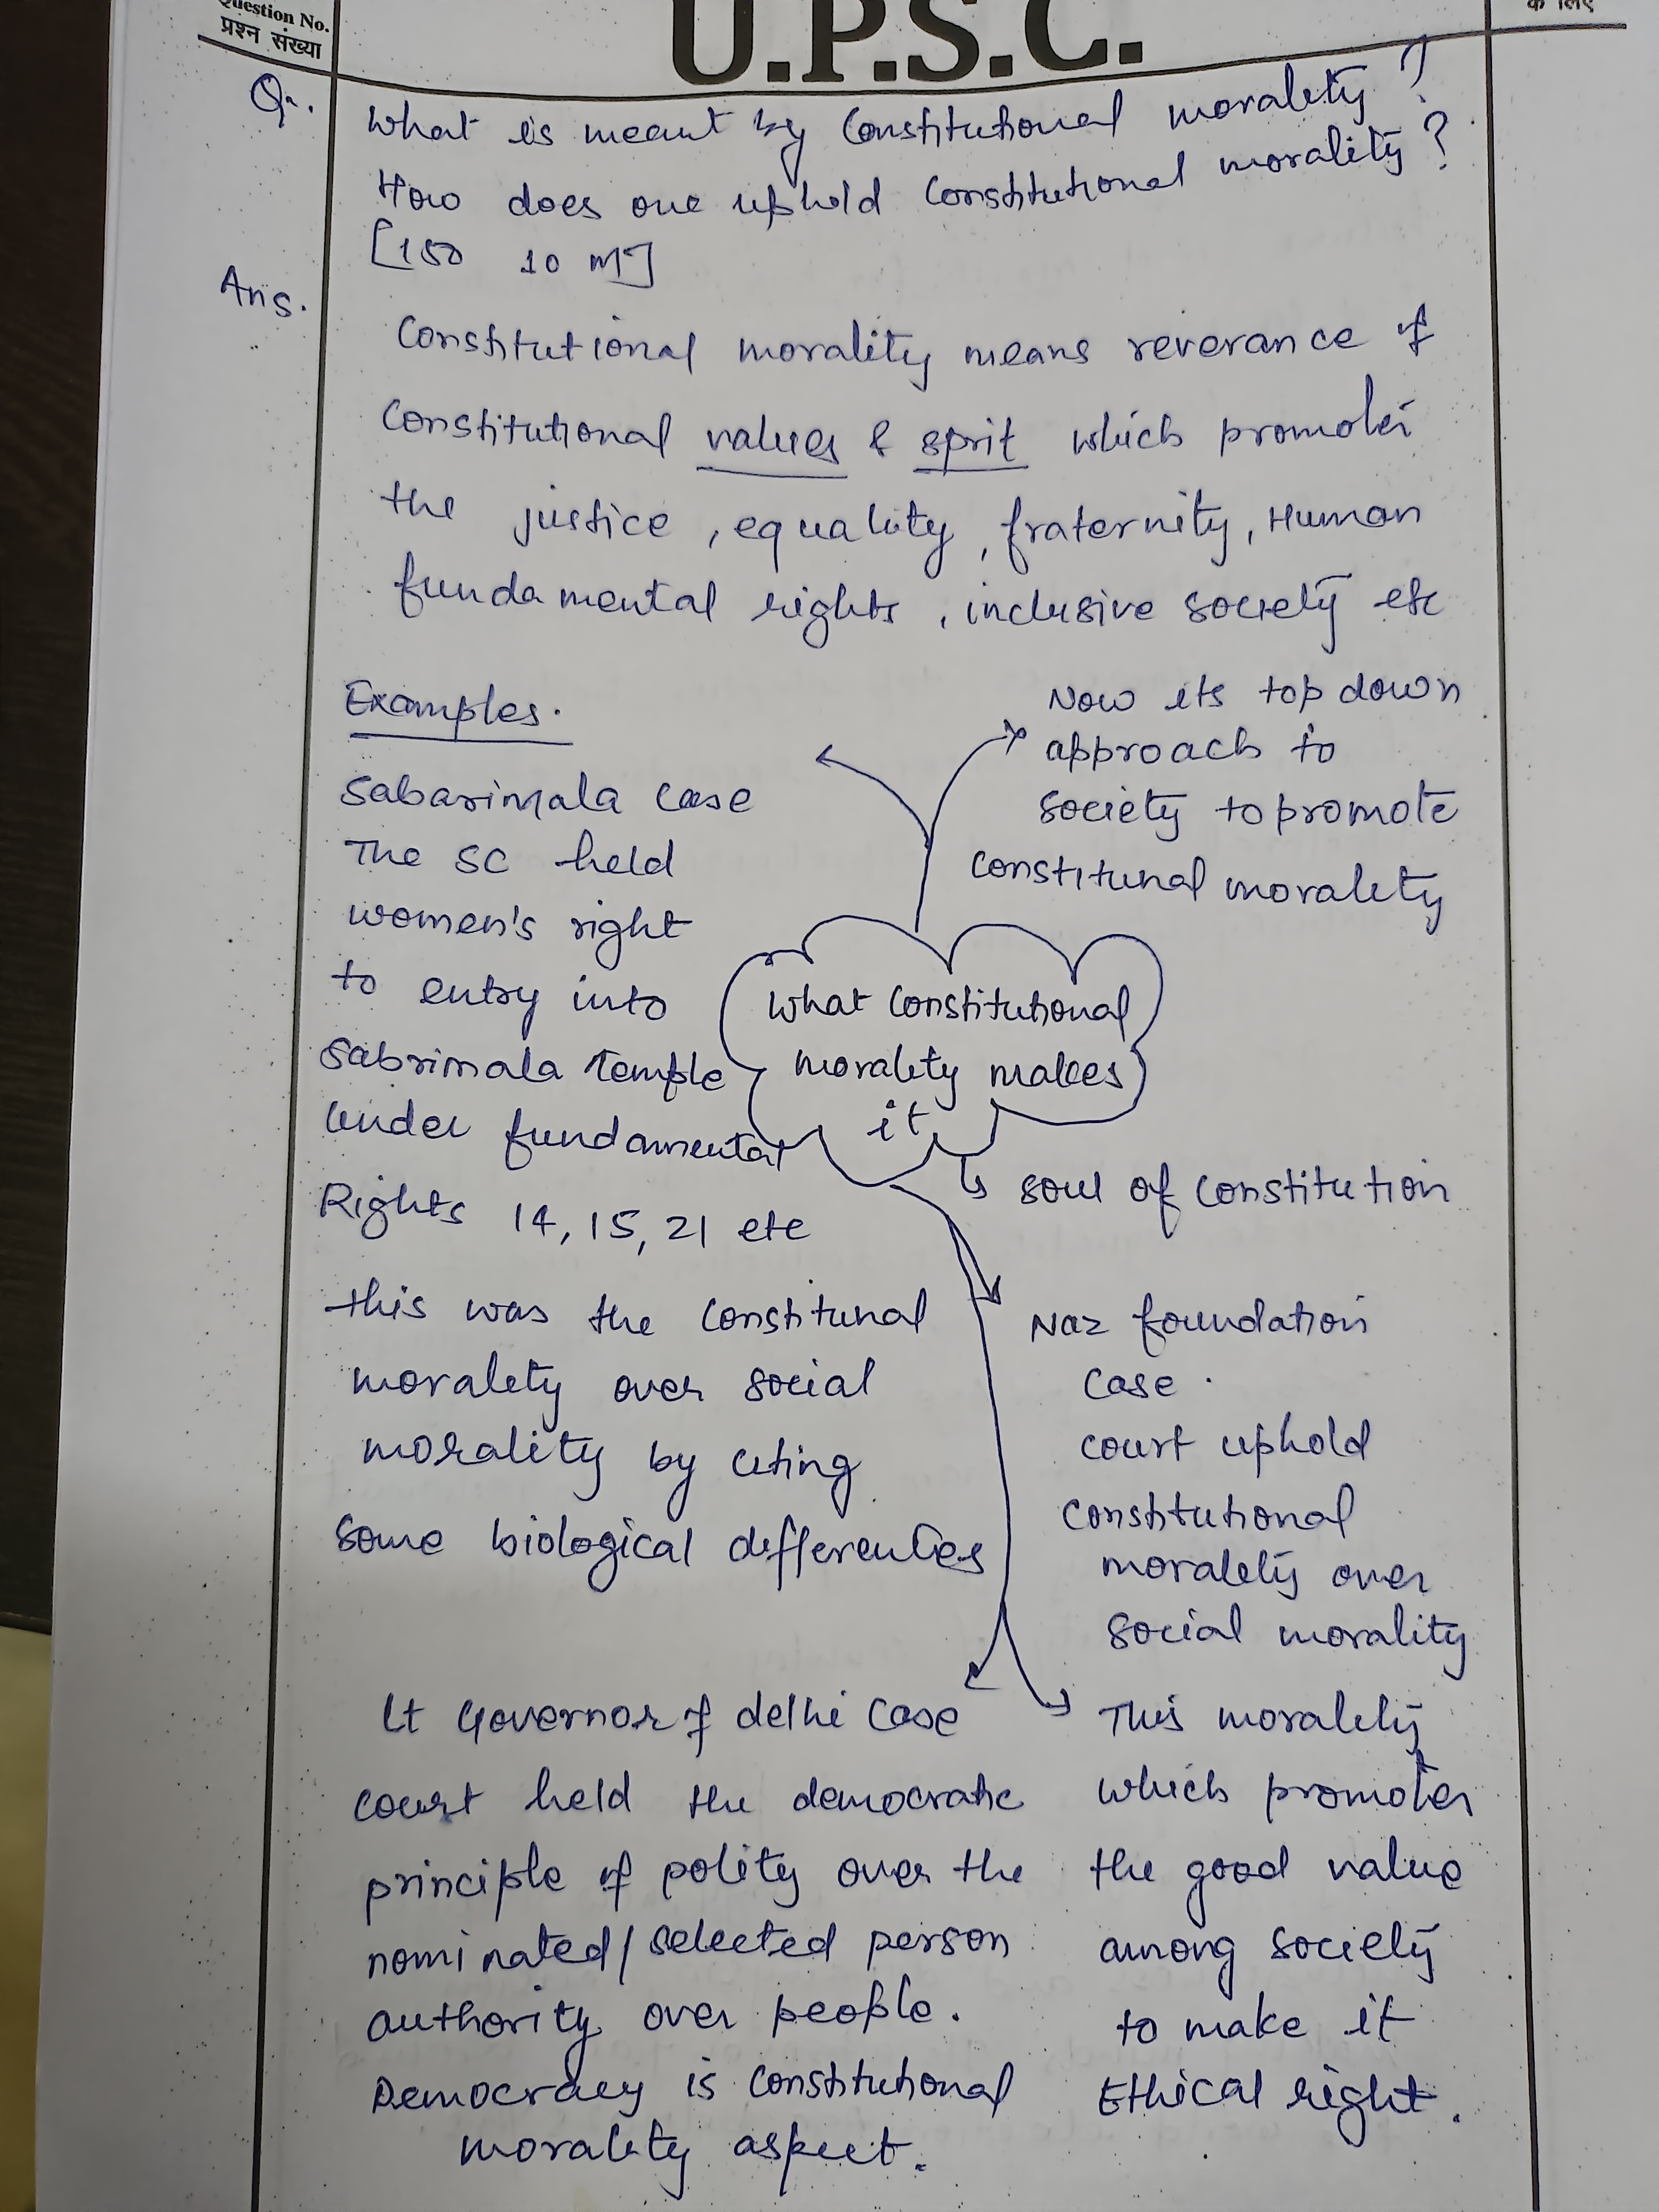 Question No.
प्रश्न संख्या
U.P.S.C.
के लिए
Q. What is meant by Constitutional morality?
How does one uphold Constitutional morality?
[150 10 M]
Ans.
Constitutional morality means reverance of
Constitutional values & sprit which promotes
the justice, equality, fraternity, Human
fundamental rights, inclusive society etc
Examples.
Sabarimala case
The SC held
women's right
to entry into
Sabrimala Temple
Under fundamental
Rights 14, 15, 21 etc
this was the constitunal
morality over social
morality by citing
some biological differencies
Now its top down
approach to
society to promote
constitunal morality
What Constitutional
morality makes
it
soul of constitution
Naz foundation
case.
court uphold
constitutional
morality over
social morality
Lt Governor of delhi case
court held the democratic
principle of polity over the
nominated/selected person
authority over people.
Democracy is constitutional
morality aspect.
This morality
which promotes
the good value
among society
to make it
Ethical right.